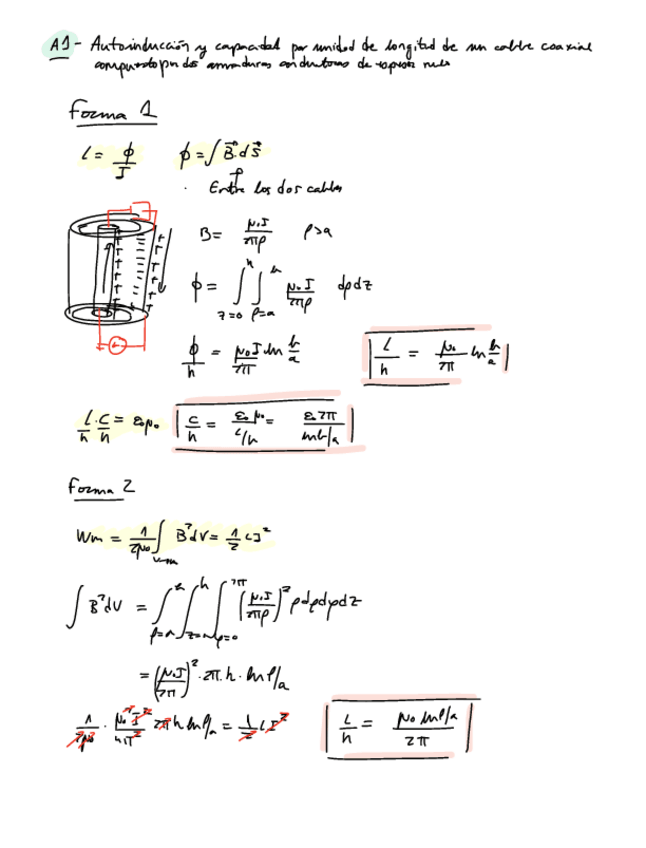 A1- Autoinducción y capacidad por unidad de longitud de un cable coaxial
compuesto por dos armaduras conductoras de espesor nulo
Forma 1
L = ϕ/I ϕ = ∫ B⃗·dS⃗
· Entre los dos cables
B = μ₀I/2πρ ρ>a
ϕ = ∫_{z=0}^{h} ∫_{ρ=a}^{b} μ₀I/2πρ dρdz
ϕ/h = μ₀I/2π ln b/a L/h = μ₀/2π ln b/a
L/h · C/h = ε₀μ₀ C/h = ε₀μ₀/(L/h) = ε₀2π/ln b/a
Forma 2
Wm = 1/2μ₀ ∫ B²dV = 1/2 LI²
∫ B²dV = ∫_{ρ=a}^{b} ∫_{z=0}^{h} ∫_{φ=0}^{2π} (μ₀I/2πρ)² ρdρdφdz
= (μ₀I/2π)² · 2π · h · ln b/a
1/2μ₀ · μ₀²I²/4π² 2πh ln b/a = 1/2 LI² L/h = μ₀ ln b/a / 2π